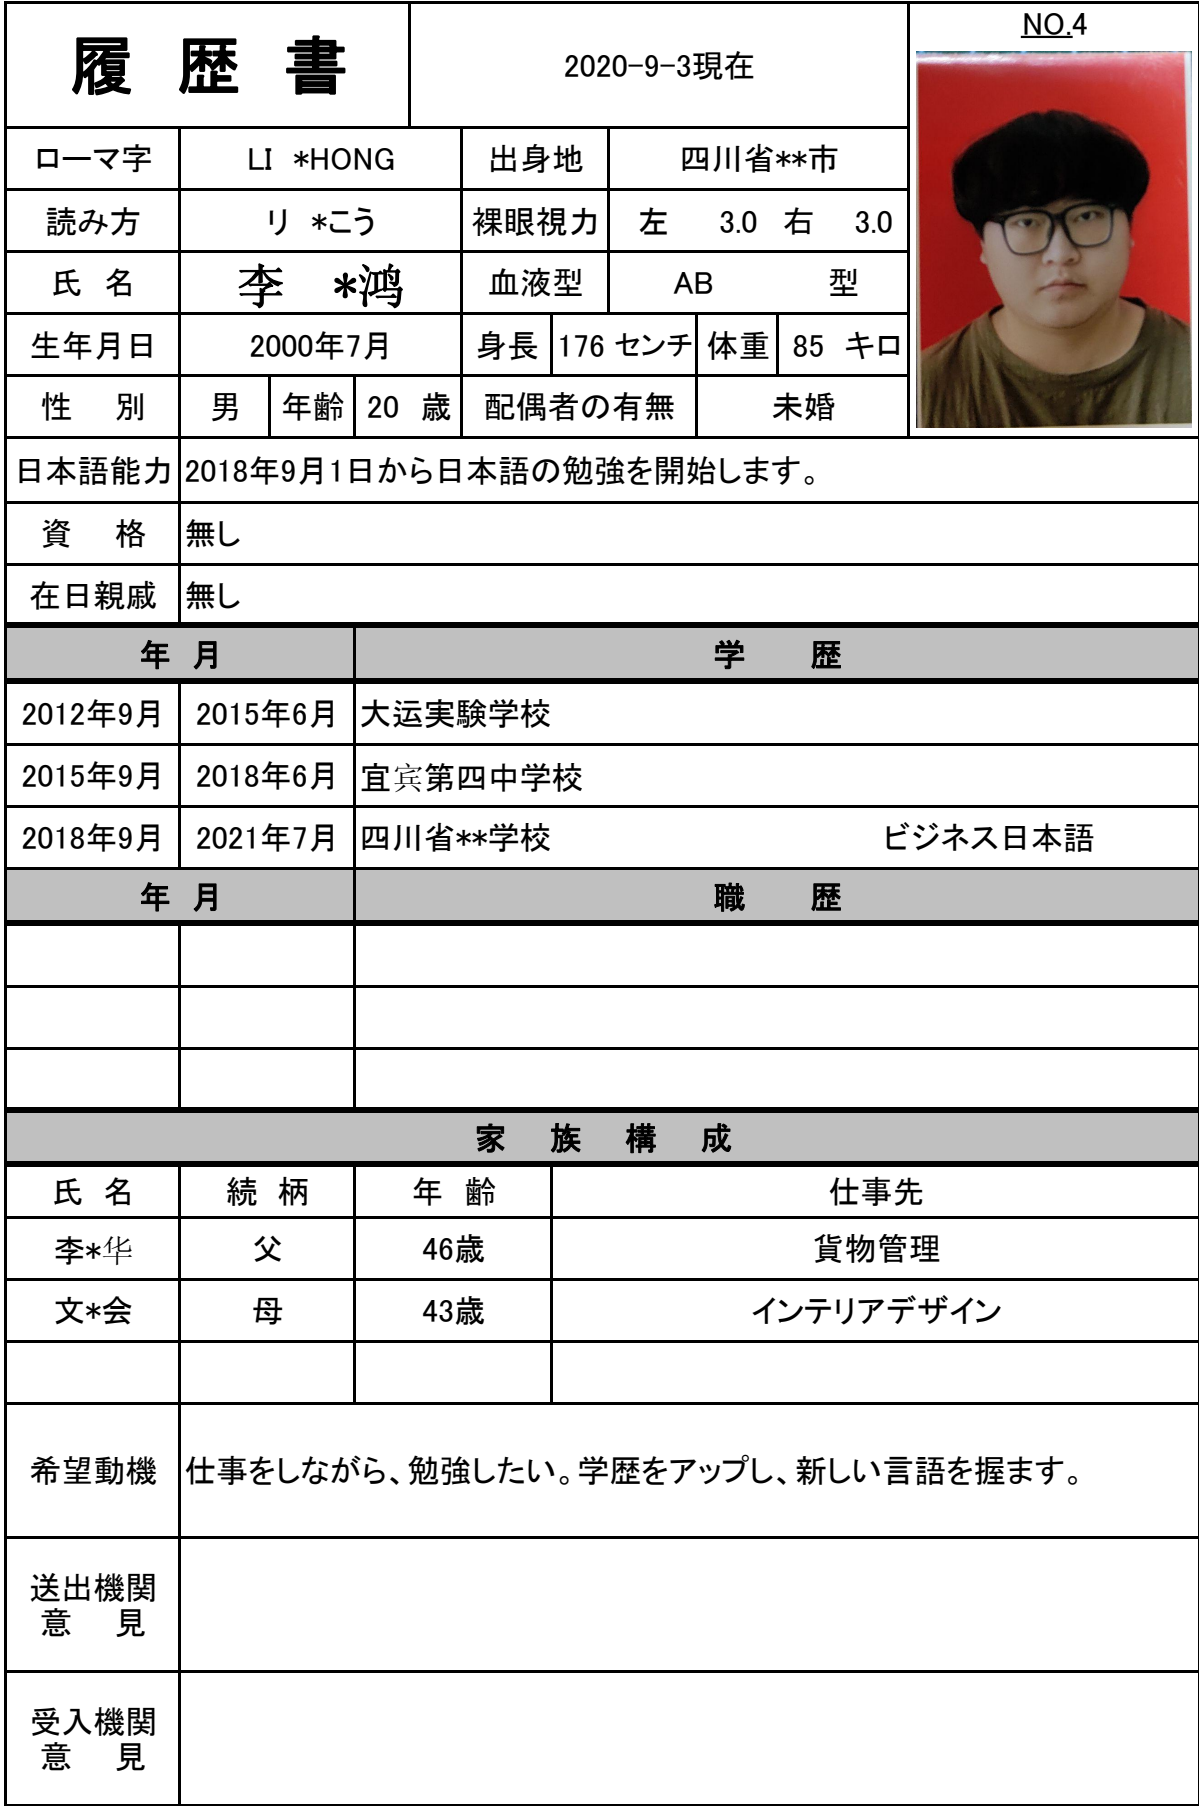 履 歴 書
2020-9-3現在
NO.4
ローマ字 LI *HONG 出身地 四川省**市
読み方 リ *こう 裸眼視力 左 3.0 右 3.0
氏 名 李 *鸿 血液型 AB 型
生年月日 2000年7月 身長 176 センチ 体重 85 キロ
性 別 男 年齢 20 歳 配偶者の有無 未婚
日本語能力 2018年9月1日から日本語の勉強を開始します。
資 格 無し
在日親戚 無し
年 月 学 歴
2012年9月 2015年6月 大运実験学校
2015年9月 2018年6月 宜宾第四中学校
2018年9月 2021年7月 四川省**学校 ビジネス日本語
年 月 職 歴
家 族 構 成
氏 名 続 柄 年 齢 仕事先
李*华 父 46歳 貨物管理
文*会 母 43歳 インテリアデザイン
希望動機 仕事をしながら、勉強したい。学歴をアップし、新しい言語を握ます。
送出機関
意 見
受入機関
意 見